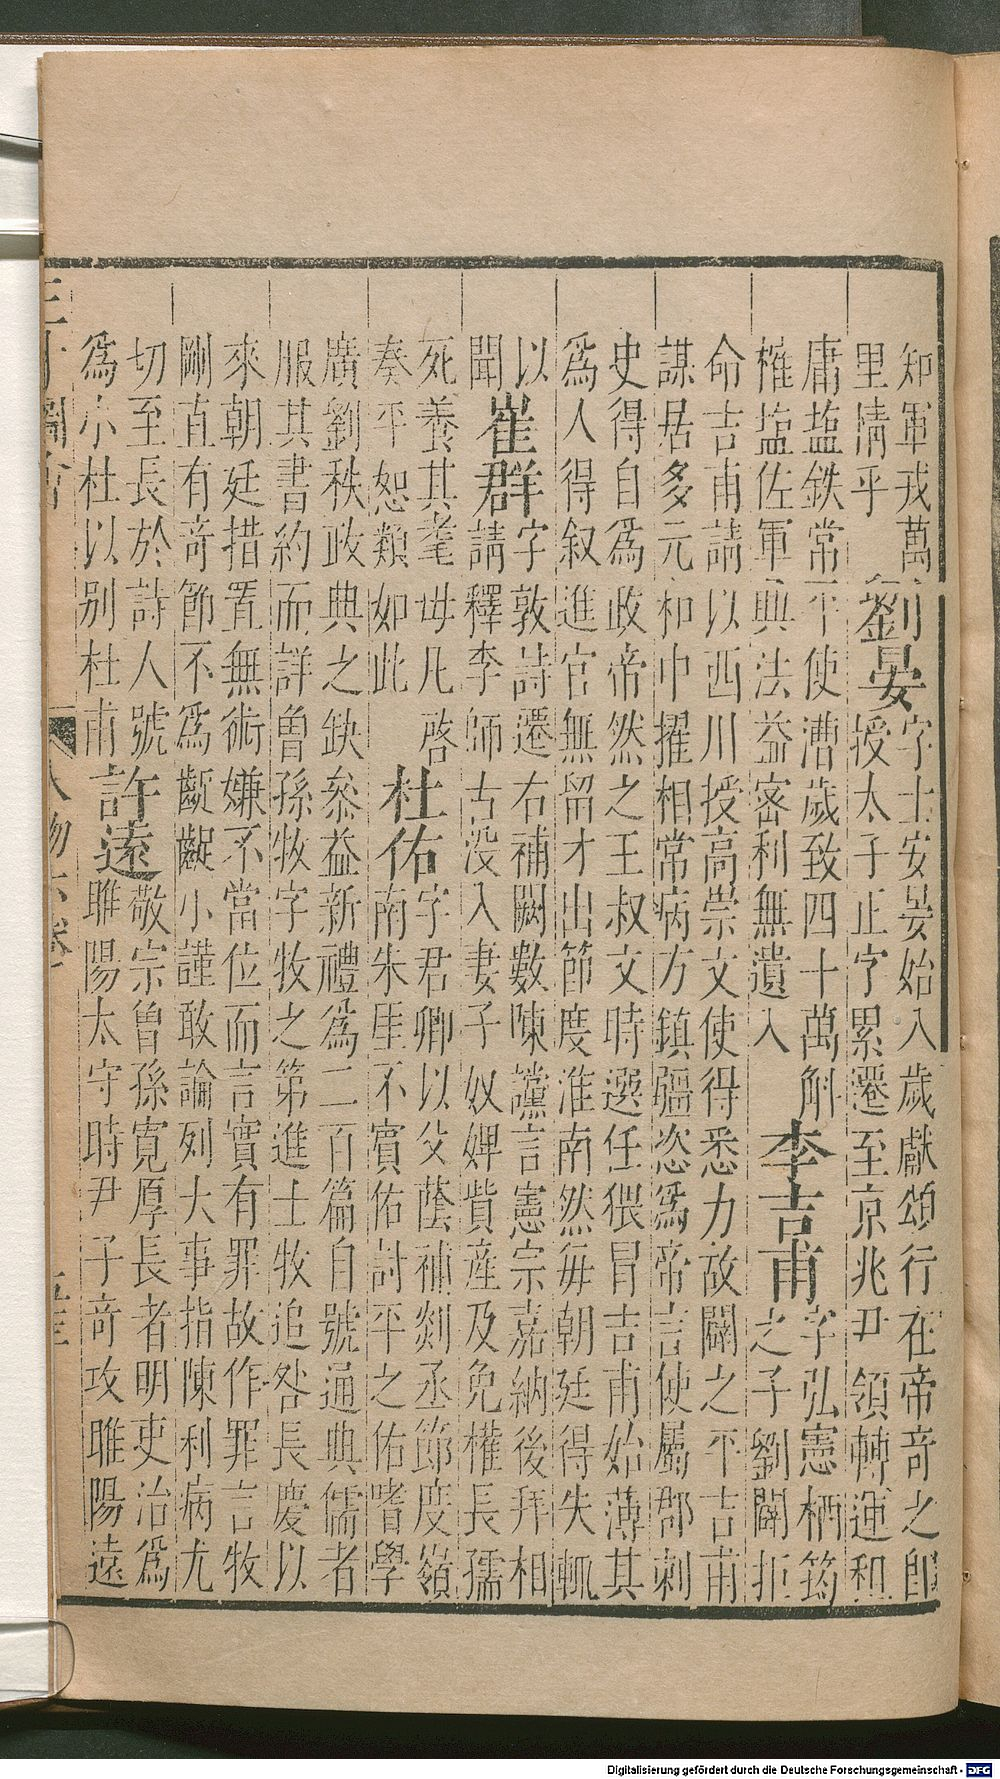 知軍戎萬
里清乎
劉晏
字士安晏始入歲獻頌行在帝奇之即
授太子止字累遷至京兆尹領轉運租
庸塩鉄常平使漕歲致四十萬斛
榷塩佐軍興法益密利無遺入
李吉甫
字弘憲栖筠
之子劉闢拒
命吉甫請以西川授高崇文使得悉力故闢之平吉甫
謀居多元和中擢相常病方鎮疆恣爲帝言使屬郡刺
史得自爲政帝然之王叔文時選任猥冒吉甫始薄其
爲人得叙進官無留才出節度淮南然每朝廷得失輒
以
聞
崔群
字敦詩遷右補闕數陳讜言憲宗嘉納後拜相
請釋李師古没入妻子奴婢貲産及免權長孺
死養其耄母凡啓
奏平恕類如此
杜佑
字君卿以父蔭補剡丞節度嶺
南朱厓不賓佑討平之佑嗜學
廣劉秩政典之缺叅益新禮爲二百篇自號通典儒者
服其書約而詳曽孫牧字牧之第進士牧追咎長慶以
來朝廷措置無術嫌不當位而言實有罪故作罪言牧
剛直有奇節不爲齪齪小謹敢論列大事指陳利病尤
切至長於詩人號
爲小杜以别杜甫
許遠
敬宗曽孫寛厚長者明吏治爲
睢陽太守時尹子奇攻睢陽遠
三才圖會
人物六卷
Digitalisierung gefördert durch die Deutsche Forschungsgemeinschaft - DFG